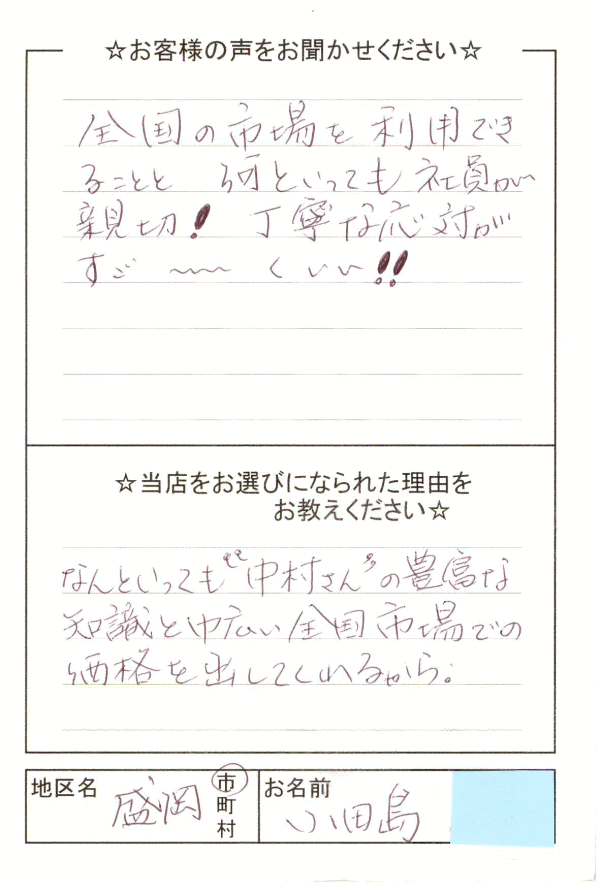 ☆お客様の声をお聞かせください☆
全国の市場を利用でき
ることと 何といっても社員が
親切! 丁寧な応対が
すご〜〜くいい!!
☆当店をお選びになられた理由を
お教えください☆
なんといっても“中村さん”の豊富な
知識と巾広い全国市場での
価格を出してくれるから。
地区名 盛岡 市
町
村
お名前 小田島